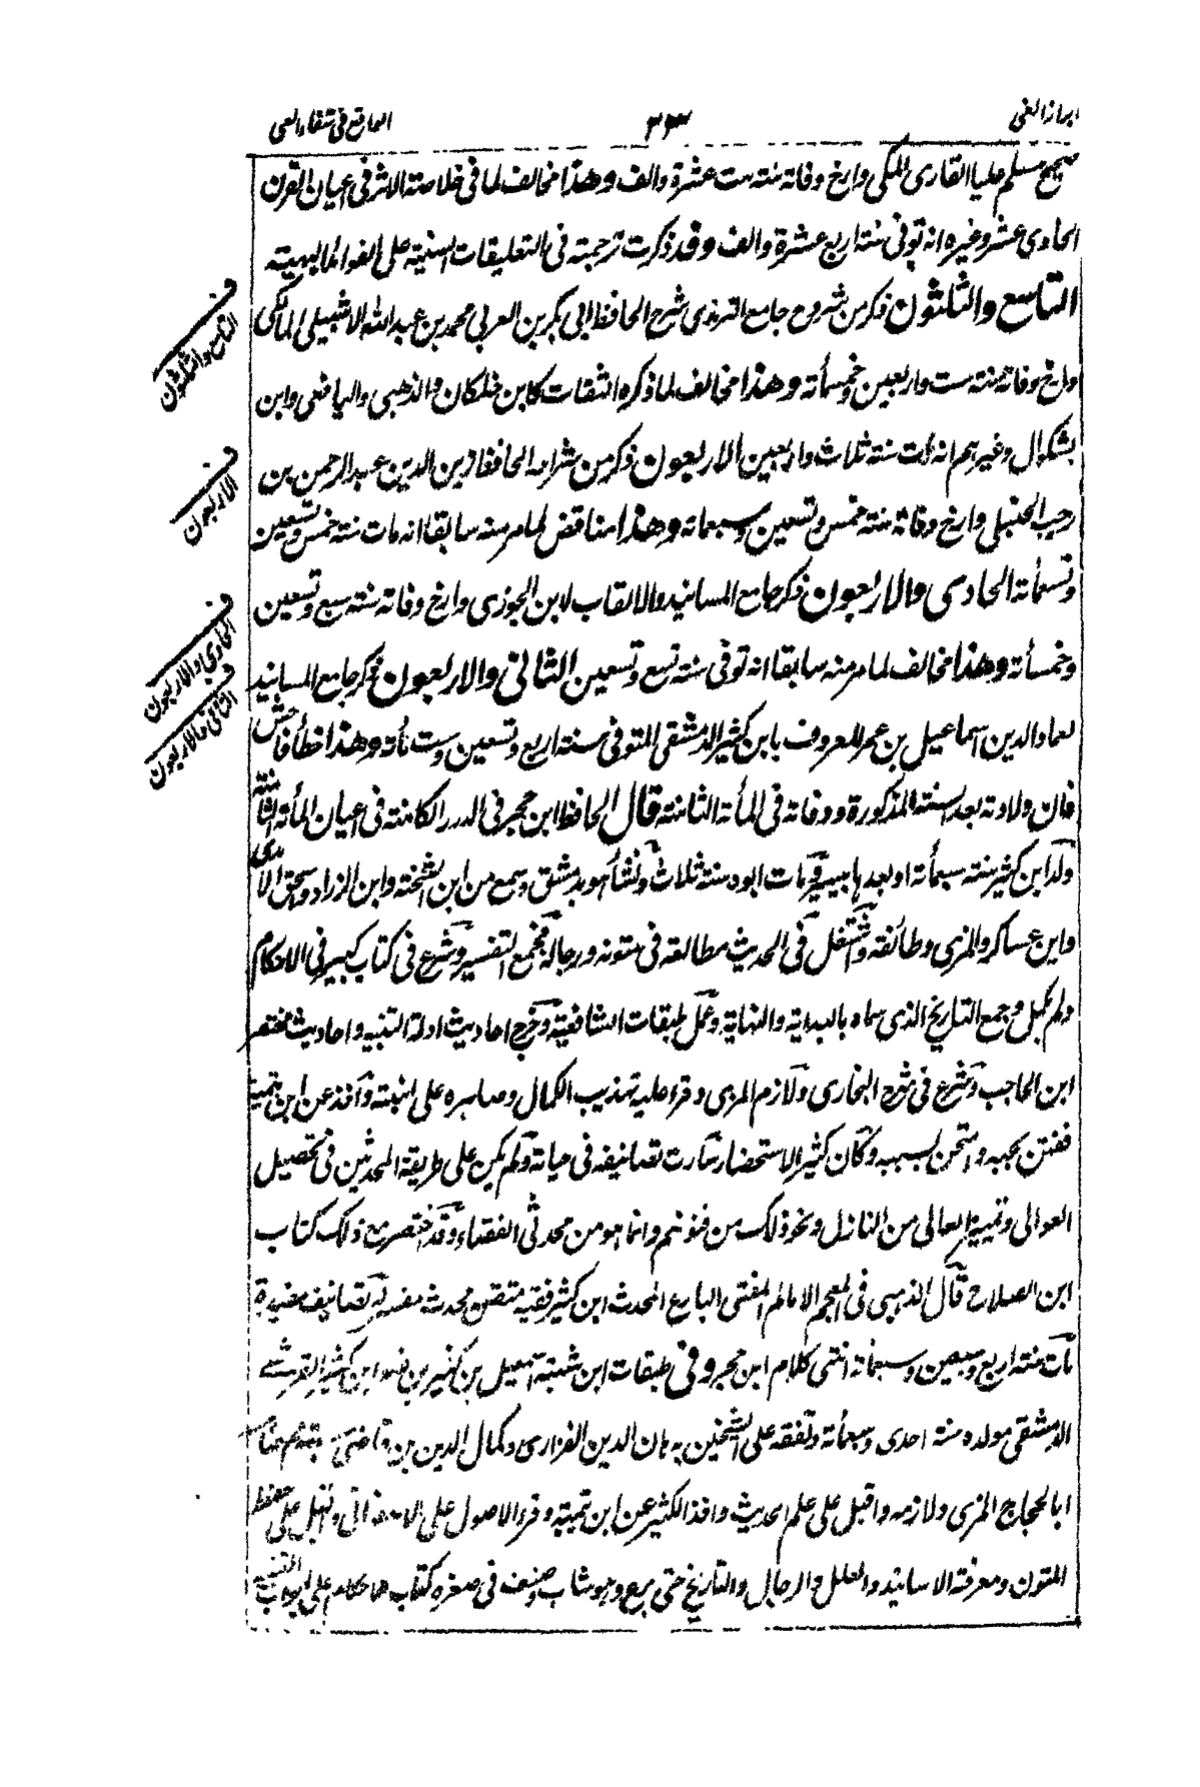 ابراز الغي
٣٣
الواقع في شفاء العي
صحيح مسلم عليا القارى المكى وارخ وفاته سنة ست عشرة والف وهذا مخالف لما فى خلاصة الاثر فى اعيان القرن
الحادى عشر وغيره انه توفى سنة اربع عشرة والف وقد ذكرت ترجمته فى التعليقات السنية على الفوائد البهية
التاسع والثلثون ذكر من شروح جامع الترمذى شرح الحافظ ابى بكر بن العربي محمد بن عبد الله الاشبيلى المالكى
وارخ وفاته سنة ست واربعين وخمسمأة وهذا مخالف لما ذكره الثقات كابن خلكان والذهبى واليافعى وابن
بشكوال وغيرهم انه مات سنة ثلاث واربعين الاربعون ذكر من شراحه الحافظ زين الدين عبد الرحمن بن
رجب الحنبلى وارخ وفاته سنة خمس وتسعين وسبعمائة وهذا مناقض لما مر منه سابقا انه مات سنة خمس وتسعين
وتسعمأة الحادى والاربعون ذكر جامع المسانيد والالقاب لابن الجوزى وارخ وفاته سنة سبع وتسعين
وخمسمأة وهذا مخالف لما مر منه سابقا انه توفى سنة تسع وتسعين الثانى والاربعون ذكر جامع المسانيد
لعماد الدين اسماعيل بن عمر المعروف بابن كثير الدمشقى المتوفى سنة اربع وتسعين وست مأة وهذا خطأ فاحش
فان ولادته بعد السنة المذكورة ووفاته فى المأة الثامنة قال الحافظ ابن حجر فى الدرر الكامنة فى اعيان المأة الثامنة
ولد ابن كثير سنة سبعمأة او بعدها بيسير ومات ابوه سنة ثلاث ونشأ هو بدمشق وسمع من ابن الشحنة وابن الزراد واسحق الآمدى
وابن عساكر والمزى وطائفة واشتغل فى الحديث مطالعة فى متونه ورجاله فجمع التفسير وشرع فى كتاب كبير فى الاحكام
ولم يكمل وجمع التاريخ الذى سماه بالبداية والنهاية وعمل طبقات الشافعية وخرج احاديث ادلة التنبيه واحاديث مختصر
ابن الحاجب وشرع فى شرح البخارى ولازم المزى وقرء عليه تهذيب الكمال وصاهره على ابنته واخذ عن ابن تيمية
ففتن بحبه وامتحن بسببه وكان كثير الاستحضار سارت تصانيفه فى حياته ولم يكن على طريقة المحدثين فى تحصيل
العوالى وتمييز العالى من النازل ونحو ذلك من فنونهم وانما هو من محدثى الفقهاء وقد اختصر مع ذلك كتاب
ابن الصلاح قال الذهبى فى المعجم الامام المفتى البارع المحدث ابن كثير فقيه متقن محدث مفسر له تصانيف مفيدة
مات سنة اربع وسبعين وسبعمأة انتهى كلام ابن حجر وفى طبقات ابن شهبة اسمعيل بن كثير بن ضوء ابن كثير القرشى
الدمشقى مولده سنة احدى وسبعمأة وتفقه على الشيخين برهان الدين الفزارى وكمال الدين بن قاضى
ابا الحجاج المزى ولازمه واقبل على علم الحديث واخذ الكثير عن ابن تيمية وقرء الاصول على الاصفهانى واقبل على حفظ
المتون ومعرفة الاسانيد والعلل والرجال والتاريخ حتى برع وهو شاب وصنف فى صغره كتاب الاحكام على ابواب التنبيه
ف
التاسع والثلثون
ف
الاربعون
ف
الحادى والاربعون
ف
الثانى والاربعون